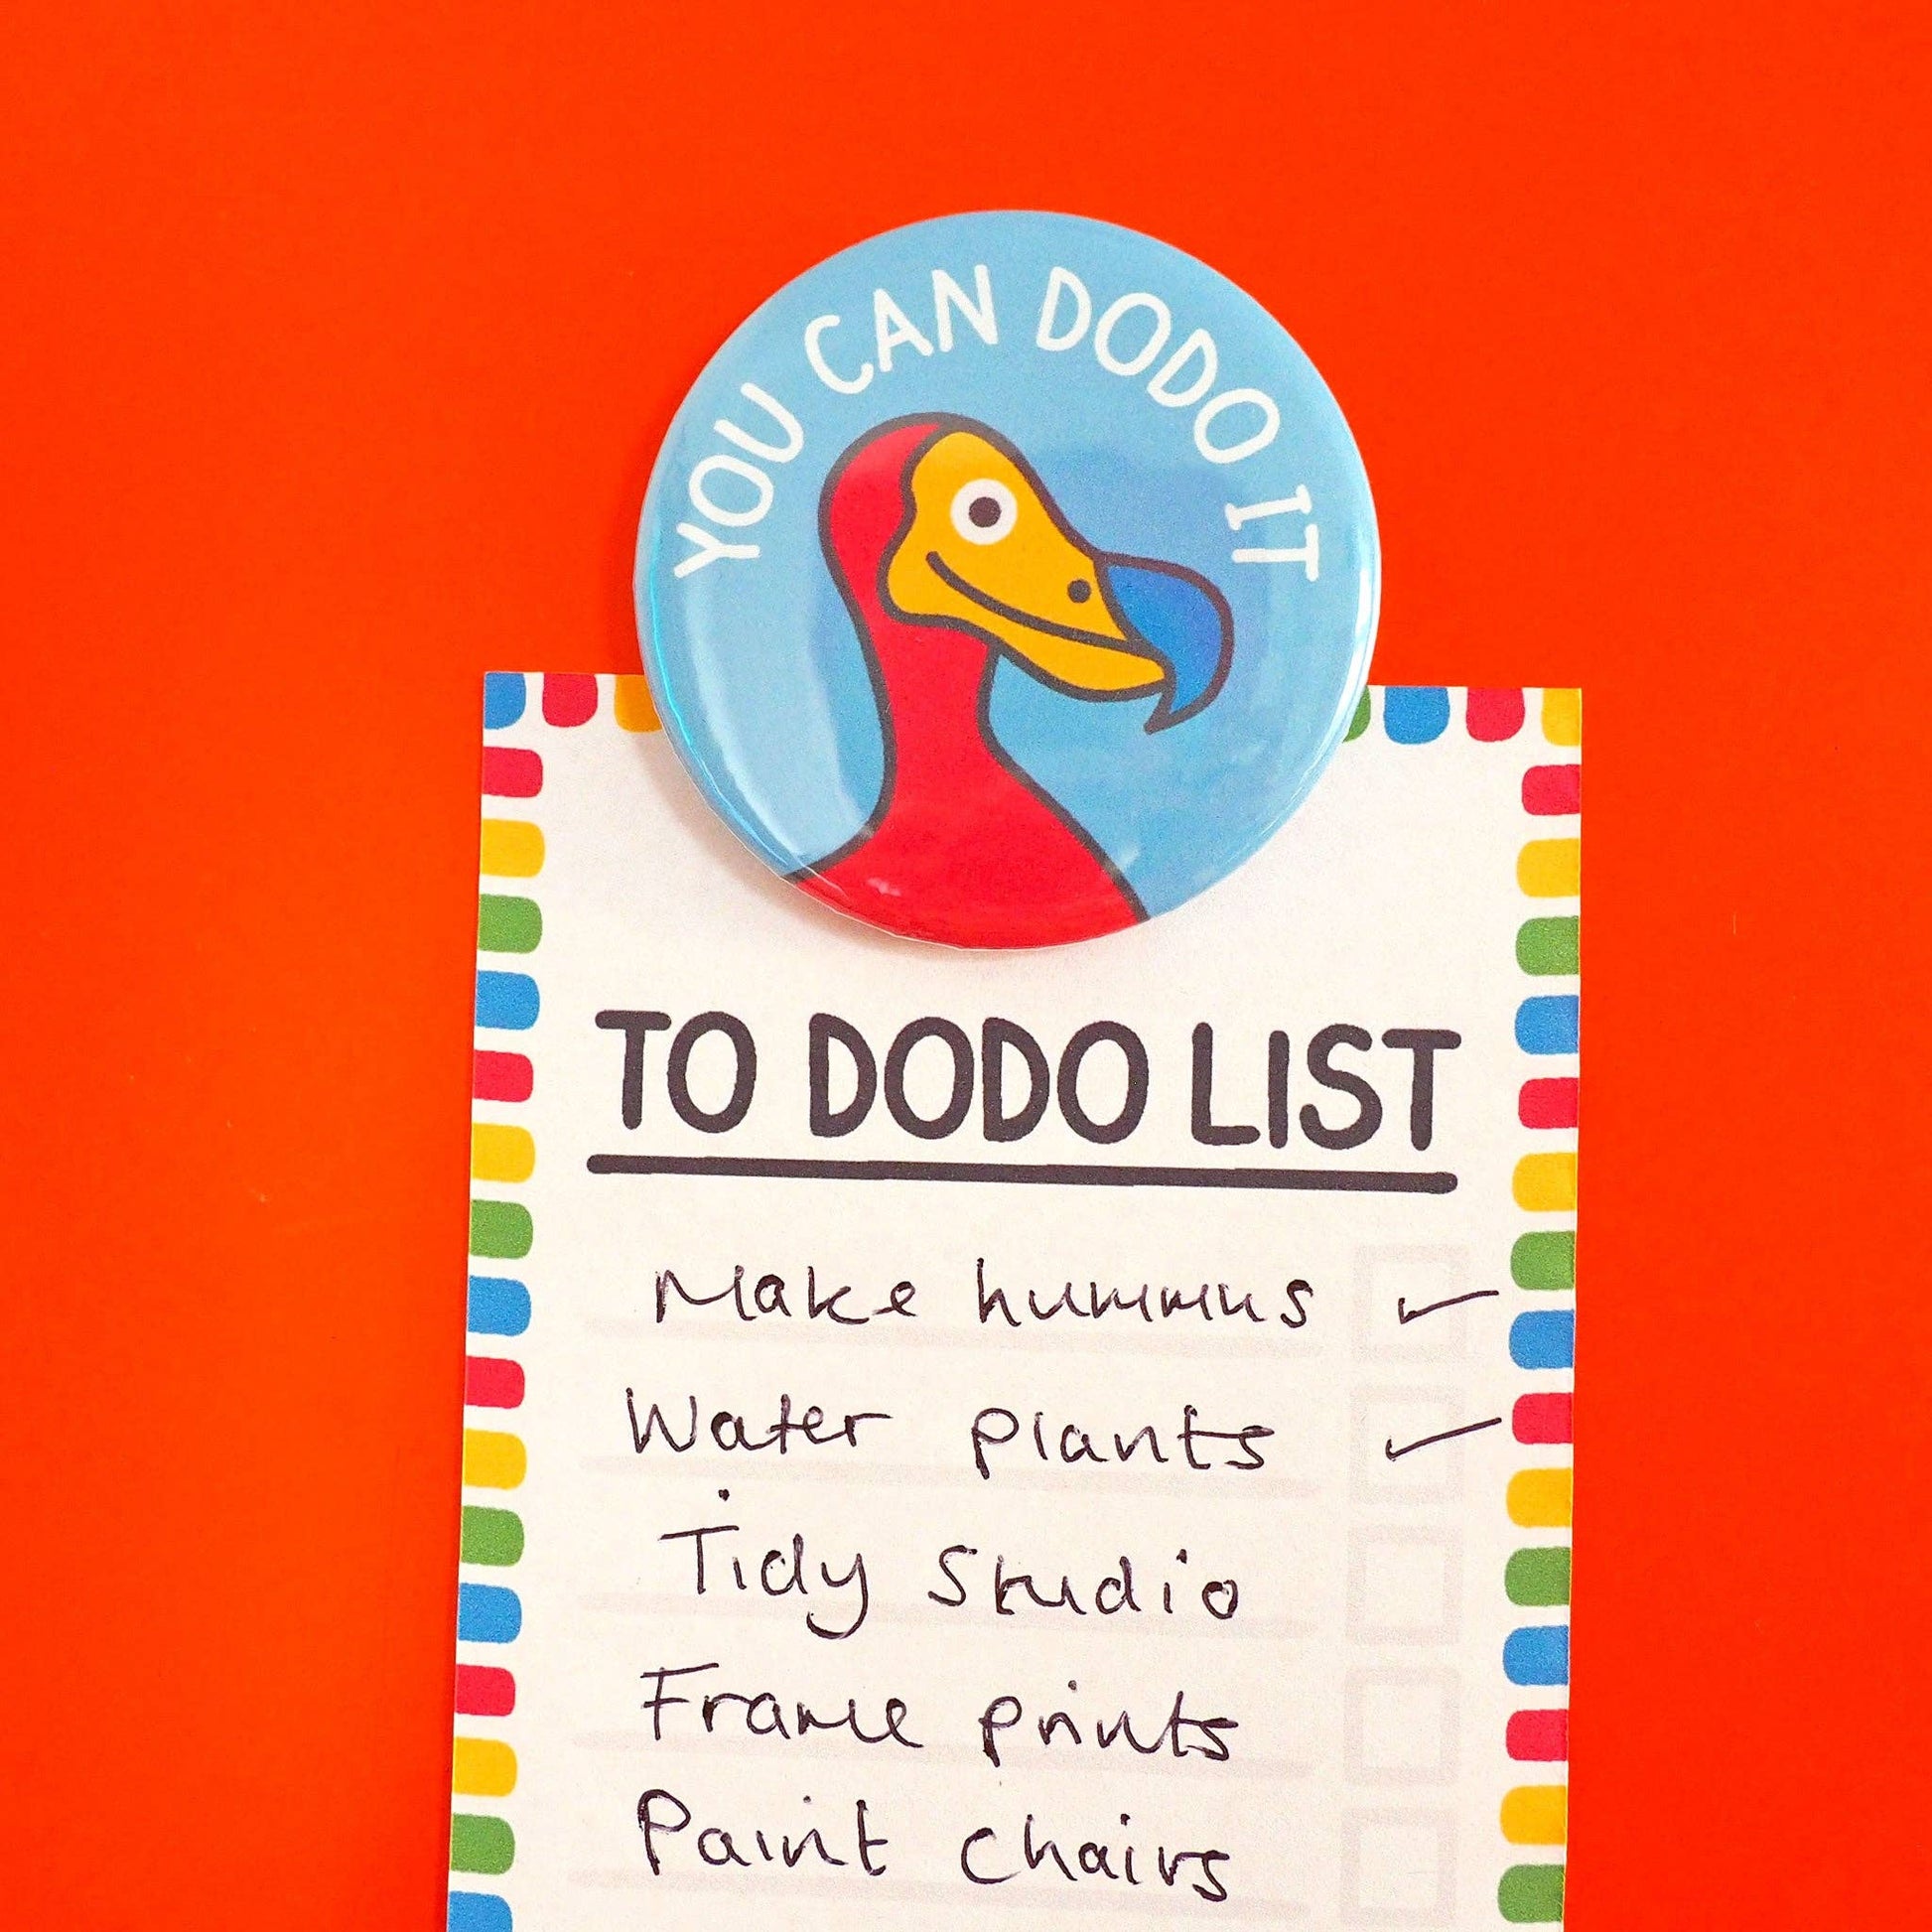 YOU CAN DODO IT
TO DODO LIST
Make hummus ✓
Water plants ✓
Tidy Studio
Frame prints
Paint chairs